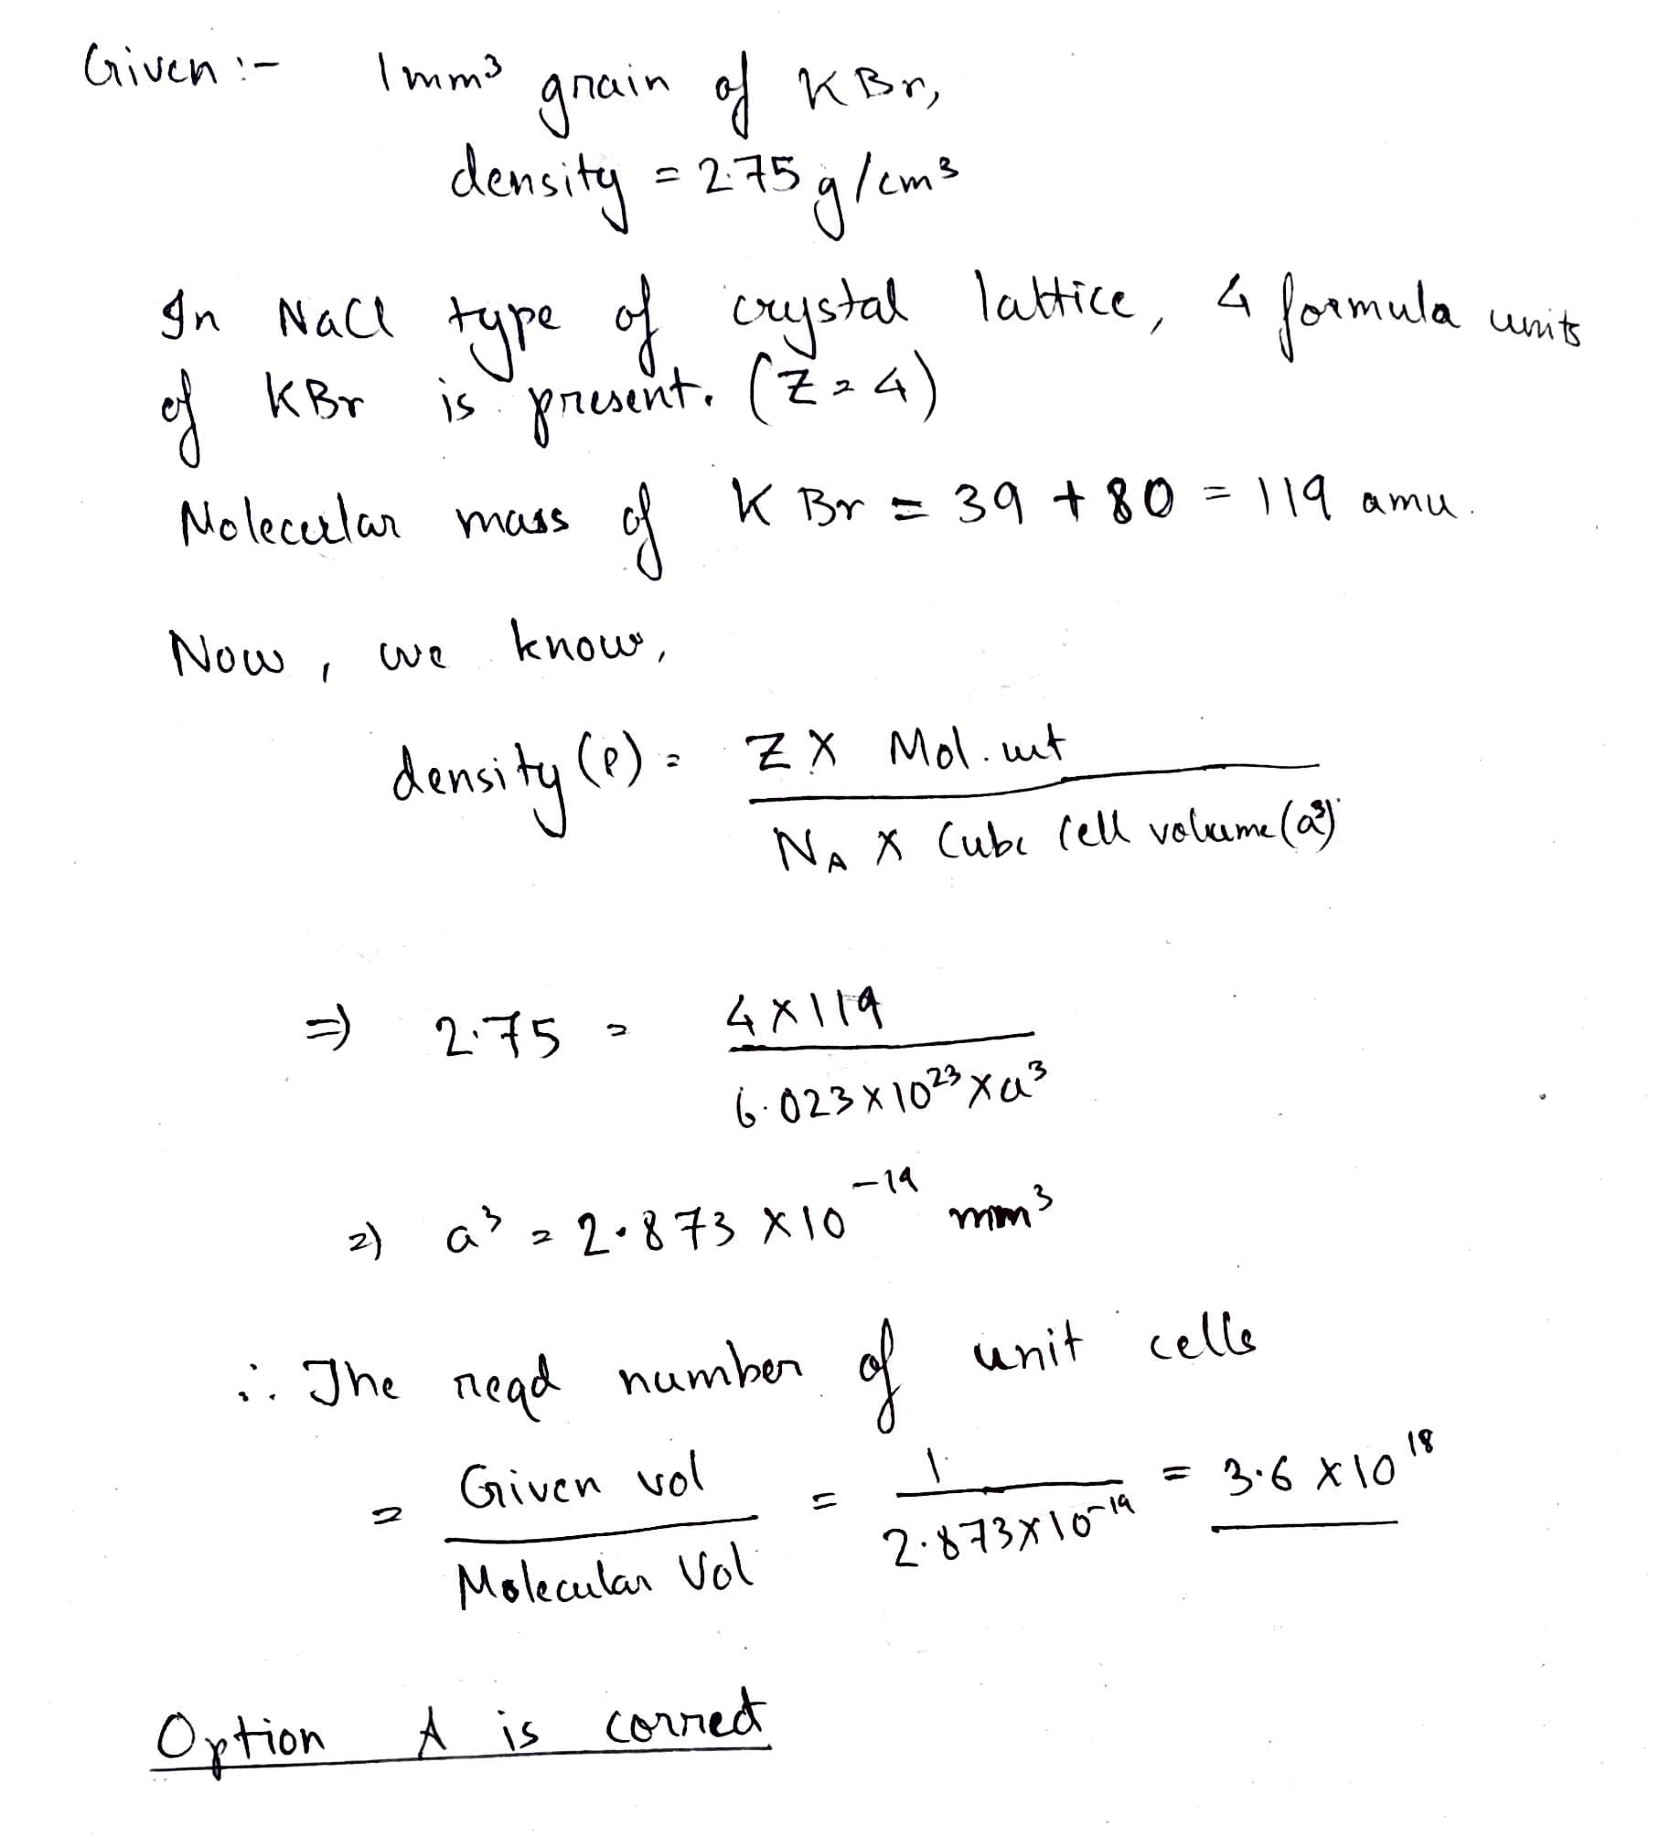 Given :- 1mm³ grain of KBr,
density = 2.75 g/cm³
In NaCl type of crystal lattice, 4 formula units
of KBr is present. (Z = 4)
Molecular mass of K Br = 39 + 80 = 119 amu.
Now, we know,
density (ρ) = Z X Mol. wt / N_A X Cube Cell volume (a³)
⇒ 2.75 = 4 X 119 / 6.023 X 10²³ X a³
⇒ a³ = 2.873 X 10⁻¹⁹ mm³
∴ The reqd number of unit cells
= Given vol / Molecular Vol = 1 / 2.873 X 10⁻¹⁹ = 3.6 X 10¹⁸
Option A is correct